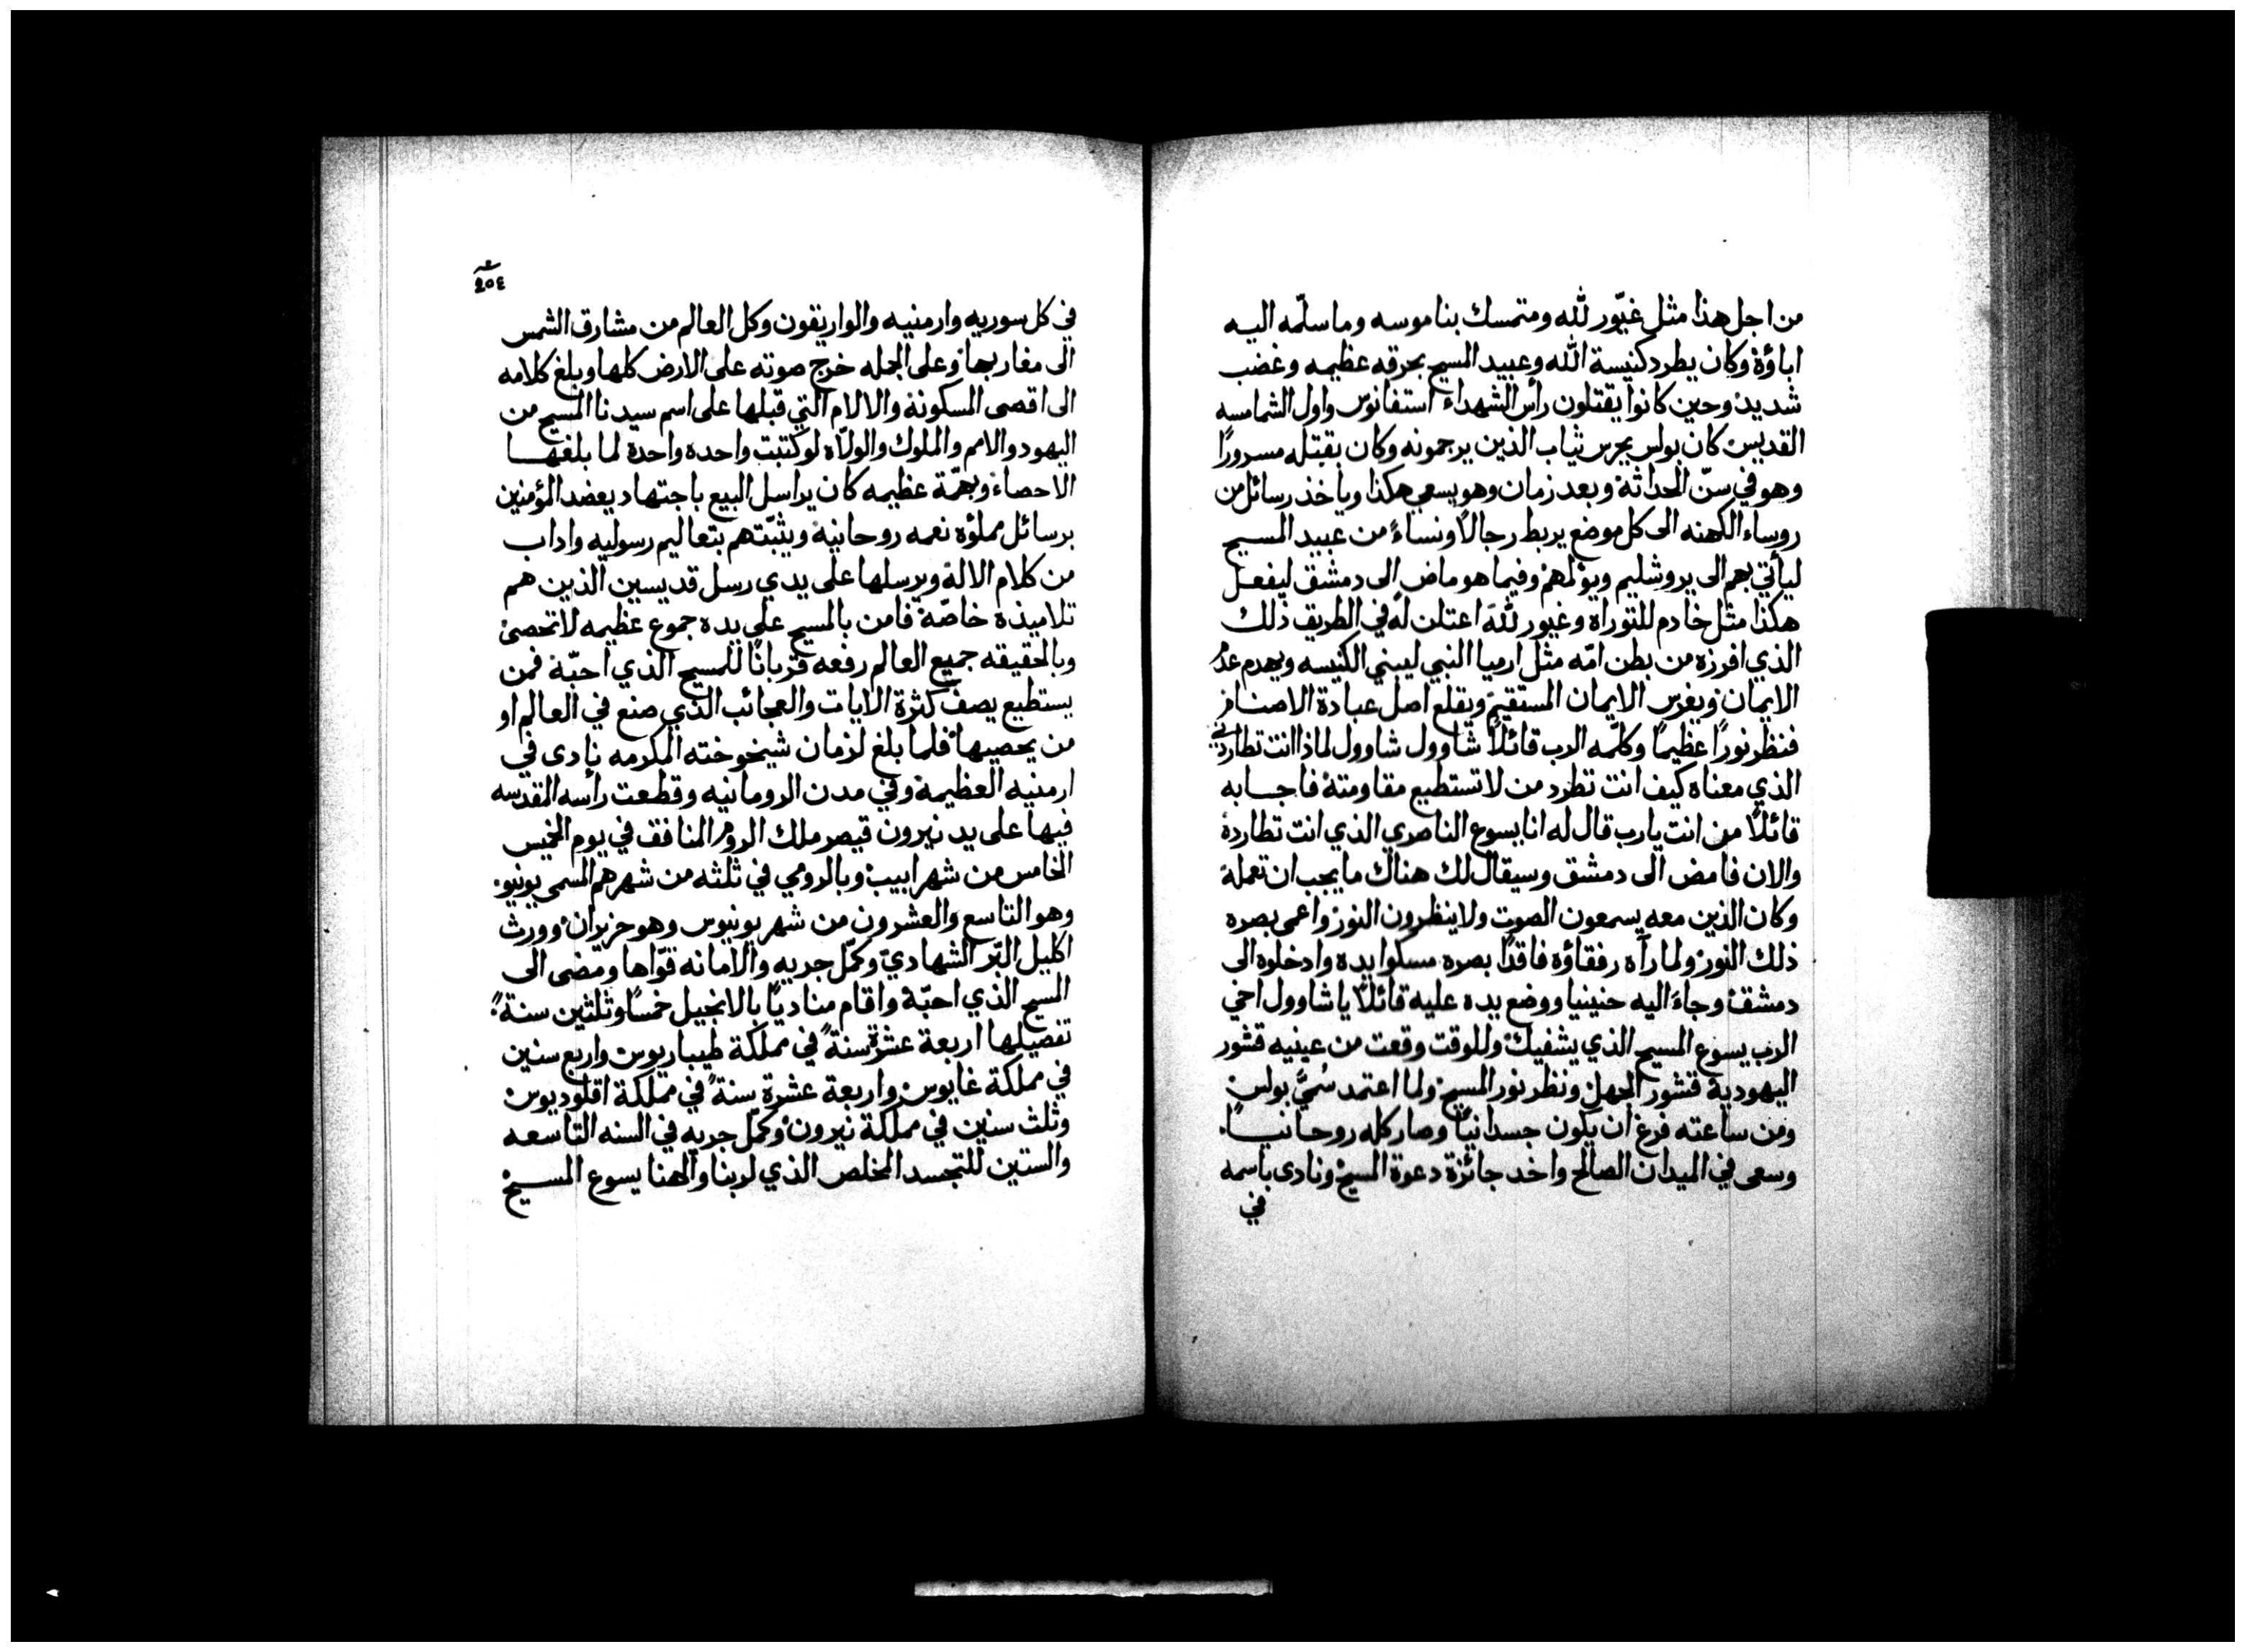 من اجل هذا مثل غيّور لله ومتمسك بناموسه وما سلّمه اليه
اباؤه وكان يطرد كنيسة الله وعبيد المسيح بحرقه عظيمه وغضب
شديد وحين كانوا يقتلون رأس الشهداء استفانوس واول الشمامسه
القديس كان بولس يحرس ثياب الذين يرجمونه وكان بقتله مسرورًا
وهو في سنّ الحداثة وبعد زمان وهو يسعى هكذا وياخذ رسائل من
روساء الكهنه الى كل موضع يربط رجالًا ونساءً من عبيد المسيح
ليأتي بهم الى يروشليم ويؤلمهم وفيما هو ماض الى دمشق ليفعل
هكذا مثل خادم للتوراة وغيور لله اعتلن له في الطريق ذلك
الذي افرزه من بطن امّه مثل ارميا النبي ليبني الكنيسه ويهدم عدم
الايمان ويغرس الايمان المستقيم ويقلع اصل عبادة الاصنام
فنظر نورًا عظيمًا وكلّمه الرب قائلًا شاوول شاوول لماذا انت تطاردني
الذي معناه كيف انت تطرد من لا تستطيع مقاومته فاجابه
قائلًا من انت يارب قال له انا يسوع الناصري الذي انت تطارده
والان فامض الى دمشق وسيقال لك هناك ما يجب ان تعمله
وكان الذين معه يسمعون الصوت ولا ينظرون النور واعمى بصره
ذلك النور ولما رآه رفقاؤه فاقدًا بصره مسكوا يده وادخلوه الى
دمشق وجاء اليه حنينيا ووضع يده عليه قائلًا يا شاوول اخي
الرب يسوع المسيح الذي يشفيك وللوقت وقعت من عينيه قشور
اليهودية قشور الجهل ونظر نور المسيح ولما اعتمد سُميّ بولس
ومن ساعته فرغ ان يكون جسدانيًا وصار كله روحانيًا
وسعى في الميدان الصالح واخد جائزة دعوة المسيح ونادى باسمه
في
٢٥٤
في كل سوريه وارمنيه والواريقون وكل العالم من مشارق الشمس
الى مغاربها وعلى الجمله خرج صوته على الارض كلها وبلغ كلامه
الى اقصى المسكونة والالام التي قبلها على اسم سيدنا المسيح من
اليهود والامم والملوك والولاه لو كتبت واحده واحدة لما بلغها
الاحصاء وبهمّة عظيمه كان يراسل البيع باجتهاد يعضد المؤمنين
برسائل مملؤه نعمه روحانية ويثبّتهم بتعاليم رسوليه واداب
من كلام الاله ويرسلها على يدي رسل قديسين الذين هم
تلاميذه خاصّة فامن بالمسيح على يده جموع عظيمه لا تحصى
وبالحقيقه جميع العالم رفعه قربانًا للمسيح الذي احبّه فمن
يستطيع يصف كثرة الايات والعجائب الذي صنع في العالم او
من يحصيها فلما بلغ لزمان شيخوخته المكرمه نادى في
ارمنيه العظيمة وفي مدن الرومانيه وقطعت رأسه المقدسه
فيها على يد نيرون قيصر ملك الروم المنافق في يوم الخميس
الخامس من شهر ابيب وبالرومي في ثلثه من شهرهم المسمى يونيو
وهو التاسع والعشرون من شهر يونيوس وهو حزيران وورث
اكليل البّر الشهاديّ وكمّل جريه والامانه قوّاها ومضى الى
المسيح الذي احبّه واقام مناديًا بالانجيل خمسًا وثلثين سنة
تفصيلها اربعة عشرة سنةً في مملكة طيباريوس واربع سنين
في مملكة غايوس واربعة عشرة سنةً في مملكة اقلوديوس
وثلث سنين في مملكة نيرون وكمّل جريه في السنه التاسعه
والستين للتجسد المخلص الذي لربنا والهنا يسوع المسيح